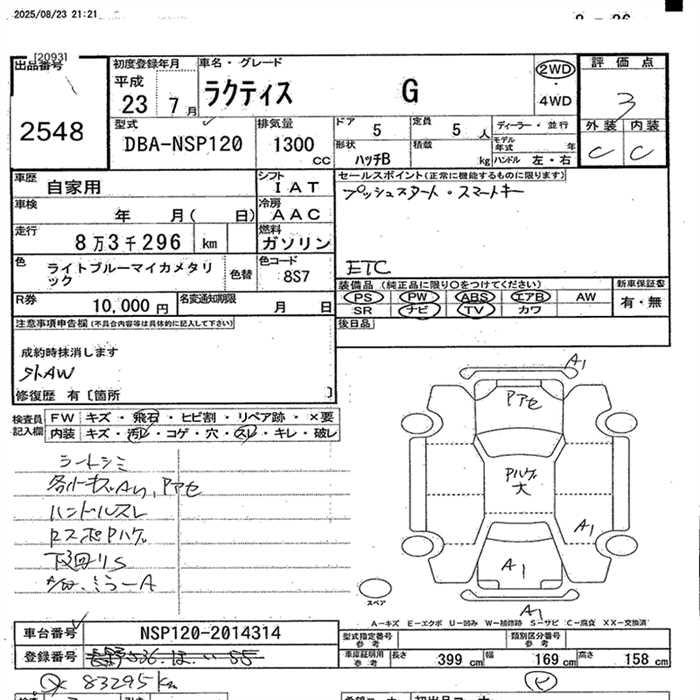 2025/08/23 21:21
[2093]
出品番号
2548
初度登録年月
平成
23 7月
車名・グレード
ラクティス G
2WD
・
4WD
評価点
3
外装 内装
C C
型式
DBA-NSP120
排気量
1300 cc
ドア 5
定員 5 人
ディーラー・並行
形状 ハッチB
積載 kg
モデル年式 年
ハンドル 左・右
車歴 自家用
シフト IAT
車検 年 月( 日)
冷房 AAC
走行 8万3千296 km
燃料 ガソリン
色 ライトブルーマイカメタリック
色替
色コード 8S7
R券 10,000円
名変通知期限 月 日
セールスポイント(正常に機能するものに限ります)
プッシュスタート・スマートキー
ETC
装備品(純正品に限り○をつけてください)
PS PW ABS エアB AW
SR ナビ TV カワ
新車保証書
有・無
後日品
注意事項申告欄(不具合内容等は具体的に記入して下さい)
成約時抹消します
修復歴 有〔箇所 〕
検査員
記入欄
FW キズ・飛石・ヒビ割・リペア跡・×要
内装 キズ・汚レ・コゲ・穴・スレ・キレ・破レ
シートシミ
ハンドルスレ
A1
Pアセ
Pハゲ
大
A1
A1
A1
スペア
A-キズ E-エクボ U-凹み W-補修跡 S-サビ C-腐食 XX-交換済
車台番号 NSP120-2014314
登録番号
型式指定番号
参考
類別区分番号
参考
車庫証明用
参考
長さ 399 cm 幅 169 cm 高さ 158 cm
83295km